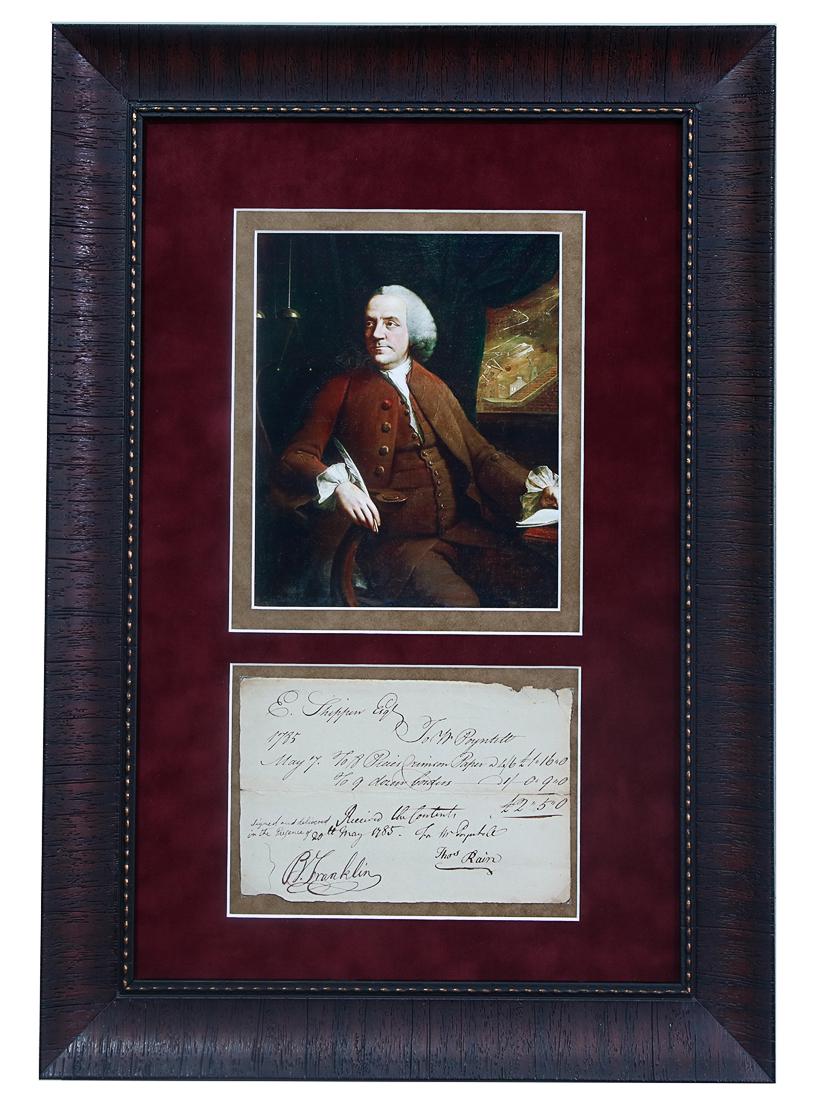 E. Shippen Esqr
1785 To Wm Poyntell
May 7. To 8 Pieces Crimson Paper 4/6 £1"16"0
To 9 dozen Borders 1/ 0"9"0
£2"5"0
signed and delivered Received the Contents
in the Presence of 20th May 1785. For Wm Poyntell
B. Franklin Thos Rain